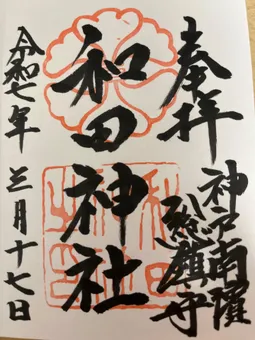 奉拝
神戸南
総鎮守
和田神社
令和七年 三月十七日